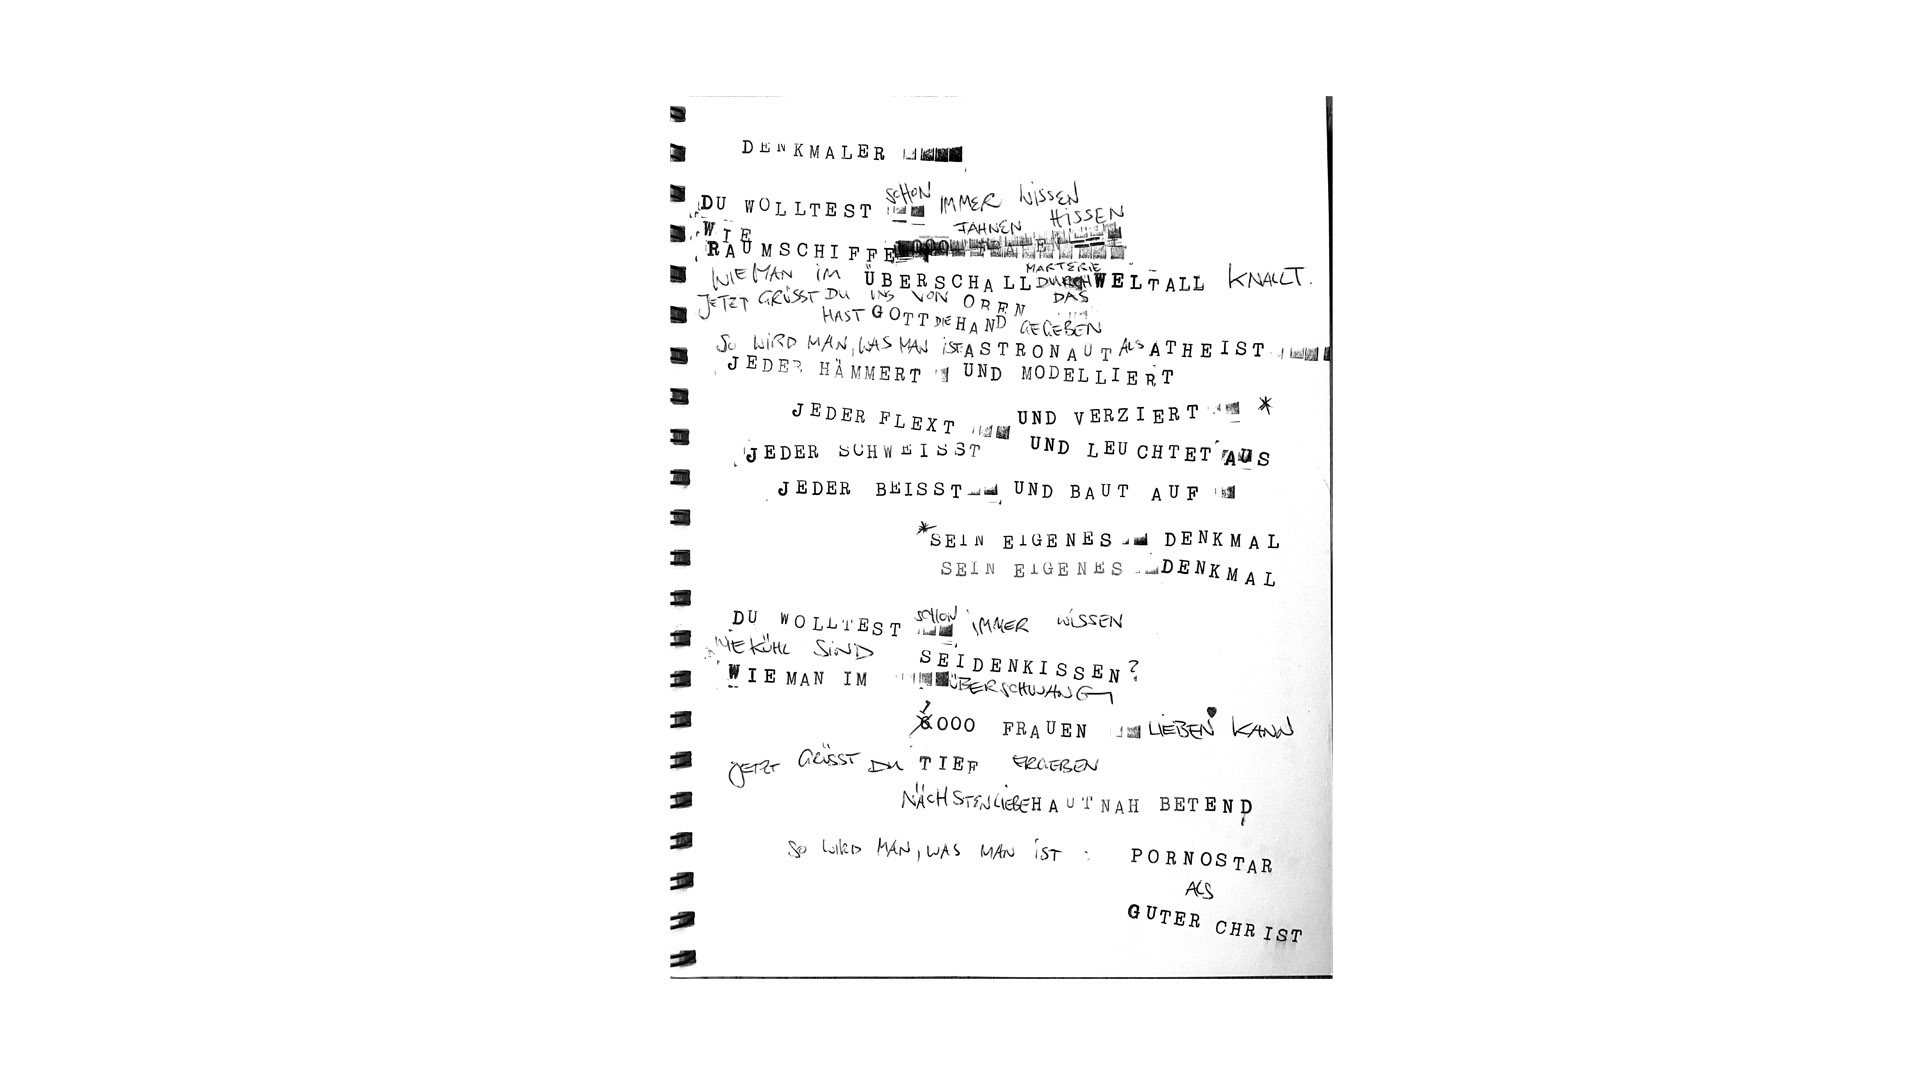 DENKMALER
DU WOLLTEST SCHON IMMER WISSEN
WIE FAHNEN HISSEN
RAUMSCHIFFE
WIE MAN IM ÜBERSCHALL MARTERIE DURCH WELTALL KNALLT.
DAS
JETZT GRÜSST DU UNS VON OBEN
HAST GOTT DIE HAND GEGEBEN
SO WIRD MAN, WAS MAN IST: ASTRONAUT ALS ATHEIST
JEDER HÄMMERT UND MODELLIERT
JEDER FLEXT UND VERZIERT *
JEDER SCHWEISST UND LEUCHTET AUS
JEDER BEISST UND BAUT AUF
*SEIN EIGENES DENKMAL
SEIN EIGENES DENKMAL
DU WOLLTEST SCHON IMMER WISSEN
WIE KÜHL SIND SEIDENKISSEN?
WIE MAN IM ÜBERSCHWANG
1000 FRAUEN LIEBEN KANN
JETZT GRÜSST DU TIEF ERGEBEN
NÄCHSTENLIEBE HAUTNAH BETEND
SO WIRD MAN, WAS MAN IST : PORNOSTAR
ALS
GUTER CHRIST